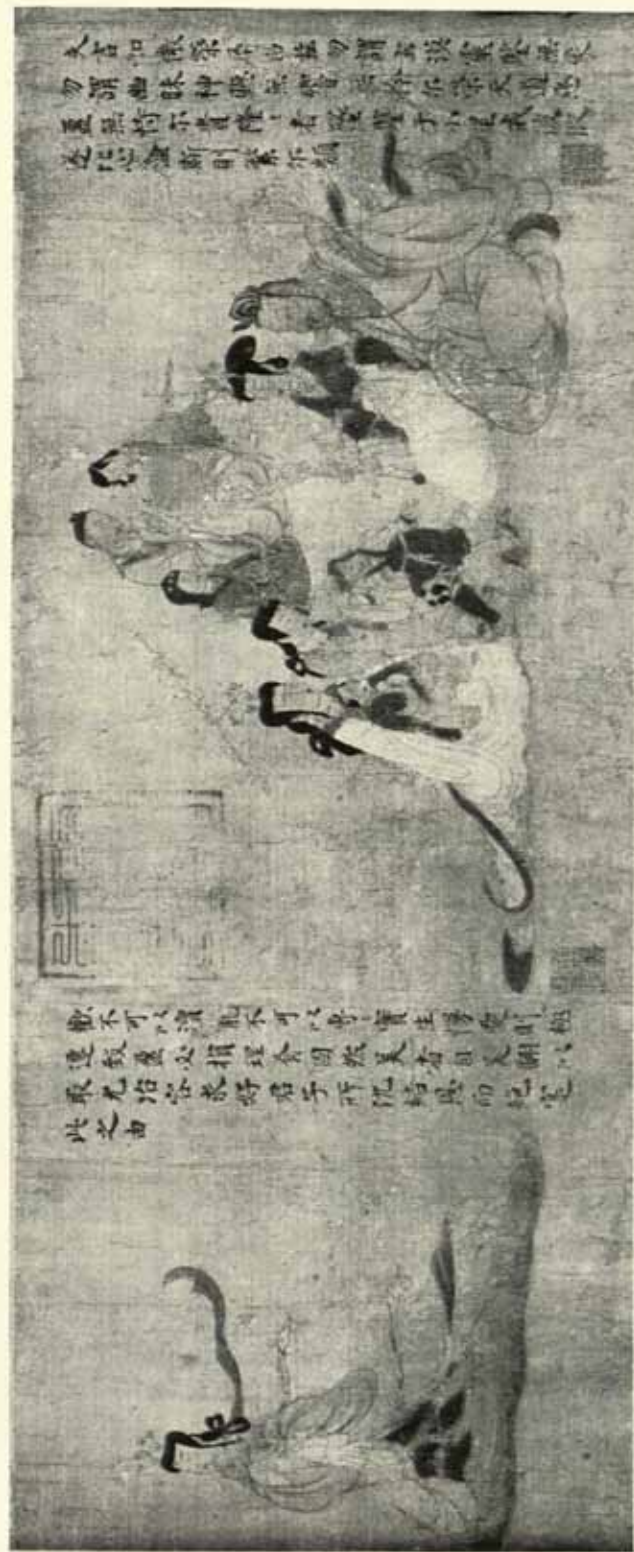 夫言如微榮辱由茲勿謂玄漠靈鑒無象
勿謂幽昧神聽無響無矜尒榮天道惡
盈無恃尒貴隆〻者墜鑒于小星戒彼攸
遂比心螽斯則繁尒類
歡不可以瀆寵不可以專實生慢愛則極
遷致盈必損理有固然美者自美翩以
取尤冶容求好君子所仇結恩而絕寔
此之由